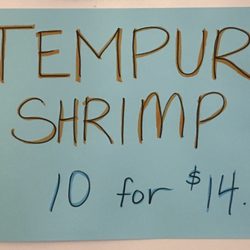 TEMPUR
SHRIMP
10 for $14.